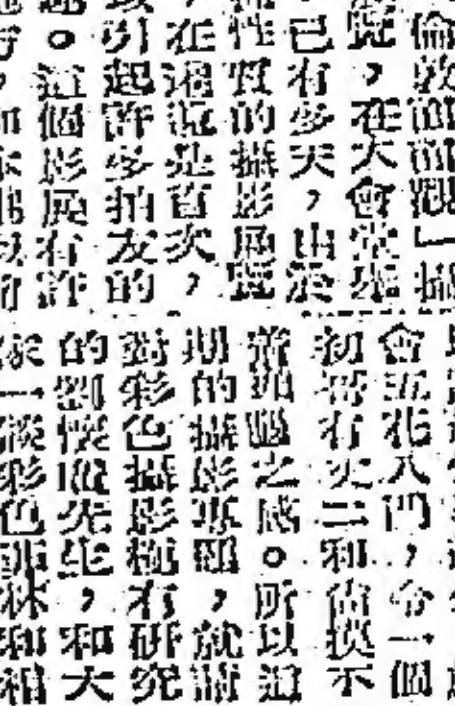 倫敦面面觀」攝
覽,在大會堂舉
已有多天,由於
性質的攝影展覽
在港還是首次,
引起許多拍友的
。這個影展有許
會五花八門,令一個
初哥有丈二和尚摸不
着頭腦之感。所以這
期的攝影專欄,就請
對彩色攝影極有研究
的劉懷先生,和大
家一談彩色菲林和相